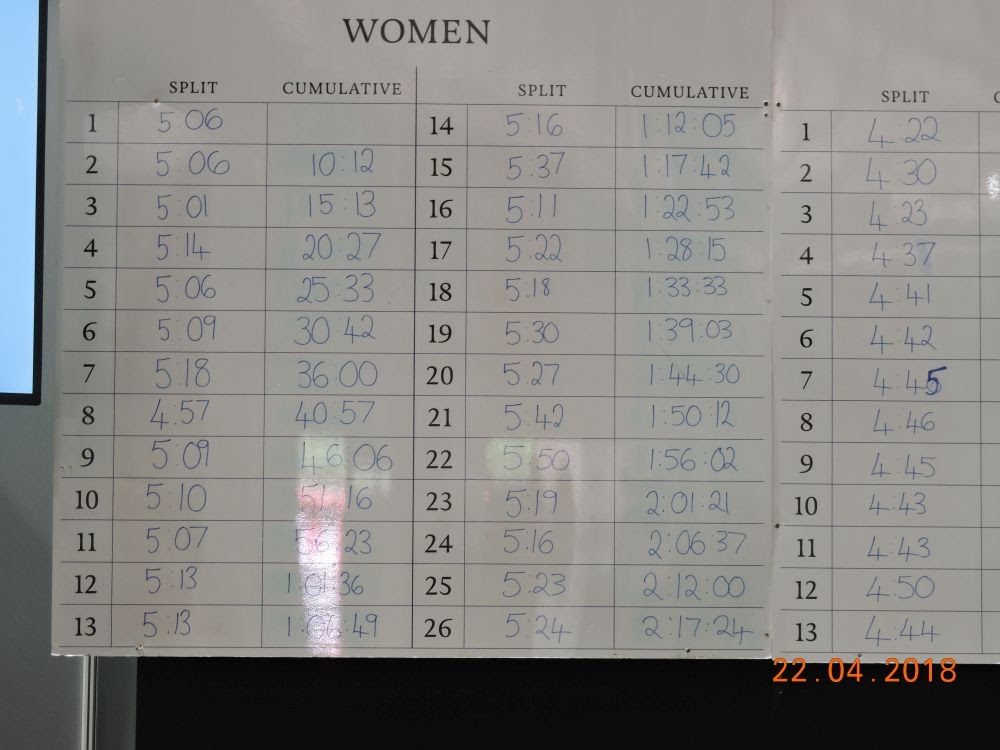 WOMEN
SPLIT CUMULATIVE SPLIT CUMULATIVE SPLIT
1 5:06 14 5:16 1:12:05 1 4:22
2 5:06 10:12 15 5:37 1:17:42 2 4:30
3 5:01 15:13 16 5:11 1:22:53 3 4:23
4 5:14 20:27 17 5:22 1:28:15 4 4:37
5 5:06 25:33 18 5:18 1:33:33 5 4:41
6 5:09 30:42 19 5:30 1:39:03 6 4:42
7 5:18 36:00 20 5:27 1:44:30 7 4:45
8 4:57 40:57 21 5:42 1:50:12 8 4:46
9 5:09 46:06 22 5:50 1:56:02 9 4:45
10 5:10 51:16 23 5:19 2:01:21 10 4:43
11 5:07 56:23 24 5:16 2:06:37 11 4:43
12 5:13 1:01:36 25 5:23 2:12:00 12 4:50
13 5:13 1:06:49 26 5:24 2:17:24 13 4:44
22.04.2018